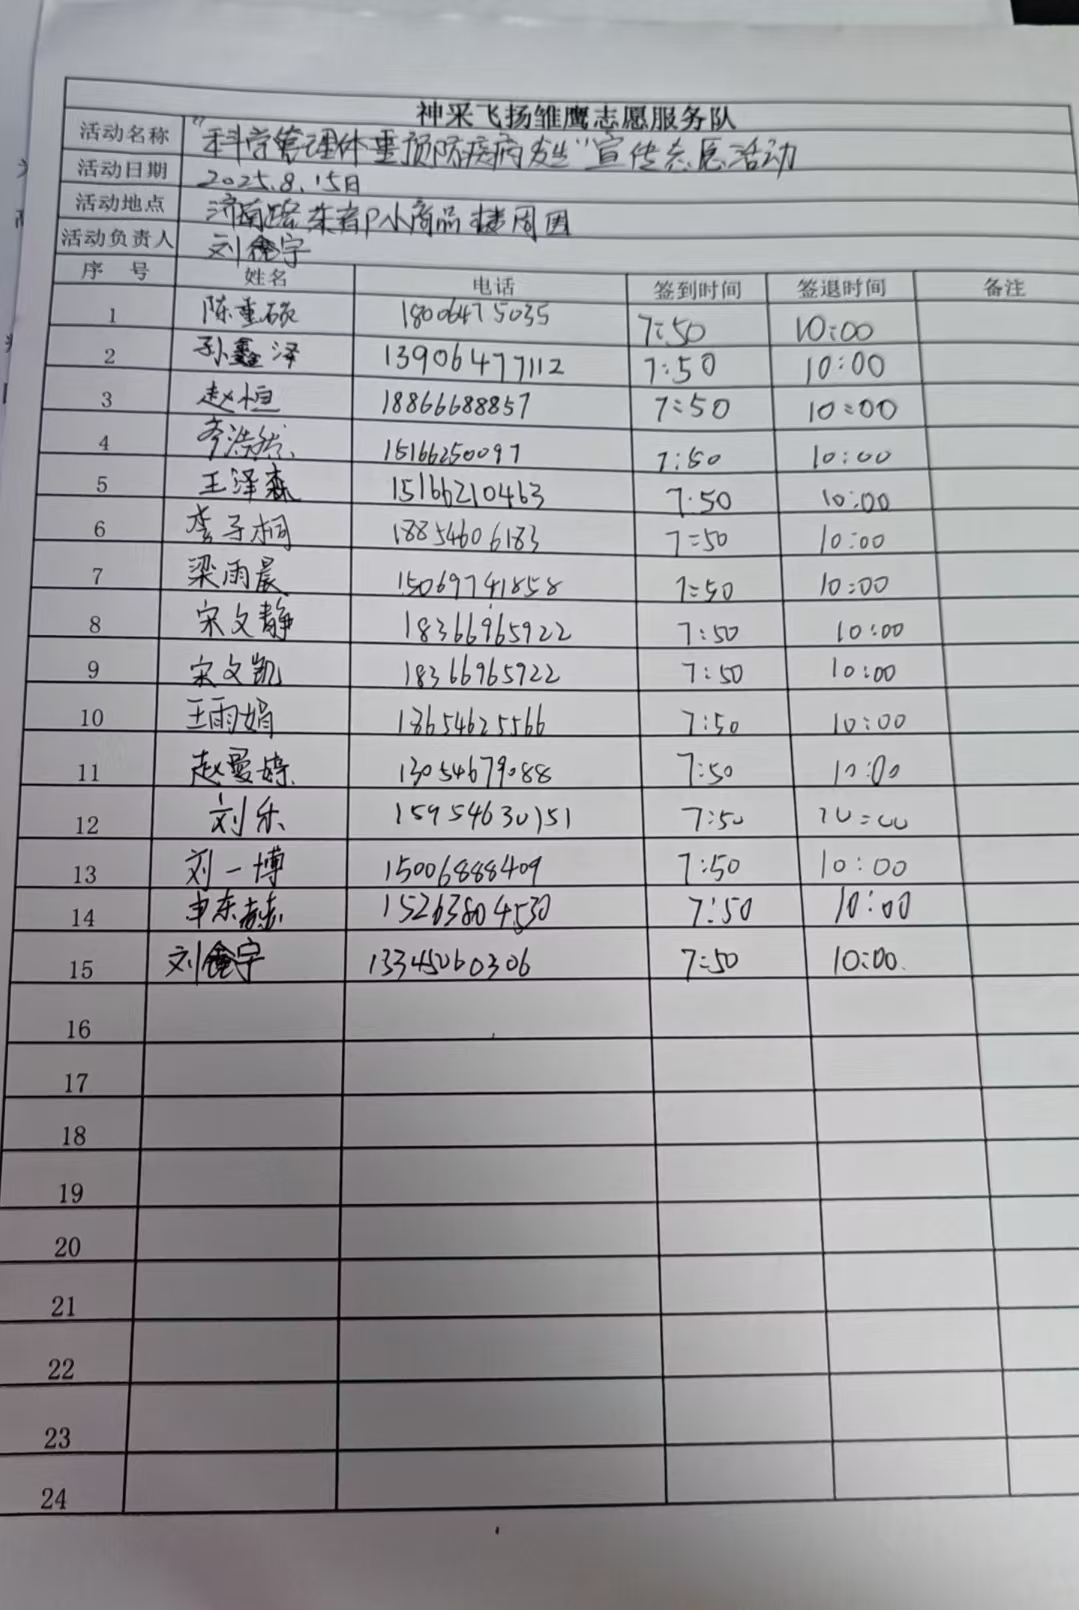 神采飞扬雏鹰志愿服务队
活动名称 "科学管理体重预防疾病发生"宣传志愿活动
活动日期 2025.8.15日
活动地点 济南路东省户小商品楼周围
活动负责人 刘鑫宇
序 号 姓名 电话 签到时间 签退时间 备注
1 陈重硕 18006475035 7:50 10:00
2 孙鑫泽 13906477112 7:50 10:00
3 赵恒 18866688857 7:50 10:00
4 李浩然 15166250097 7:50 10:00
5 王泽森 15166210463 7:50 10:00
6 李子桐 18854606183 7:50 10:00
7 梁雨晨 15069741858 7:50 10:00
8 宋文静 18366965922 7:50 10:00
9 宋文凯 18366965922 7:50 10:00
10 王雨娟 18654625566 7:50 10:00
11 赵曼婷 13054679088 7:50 10:00
12 刘乐 15954630151 7:50 10:00
13 刘一博 15006888409 7:50 10:00
14 申东赫 15263804530 7:50 10:00
15 刘鑫宇 13345060306 7:50 10:00
16
17
18
19
20
21
22
23
24